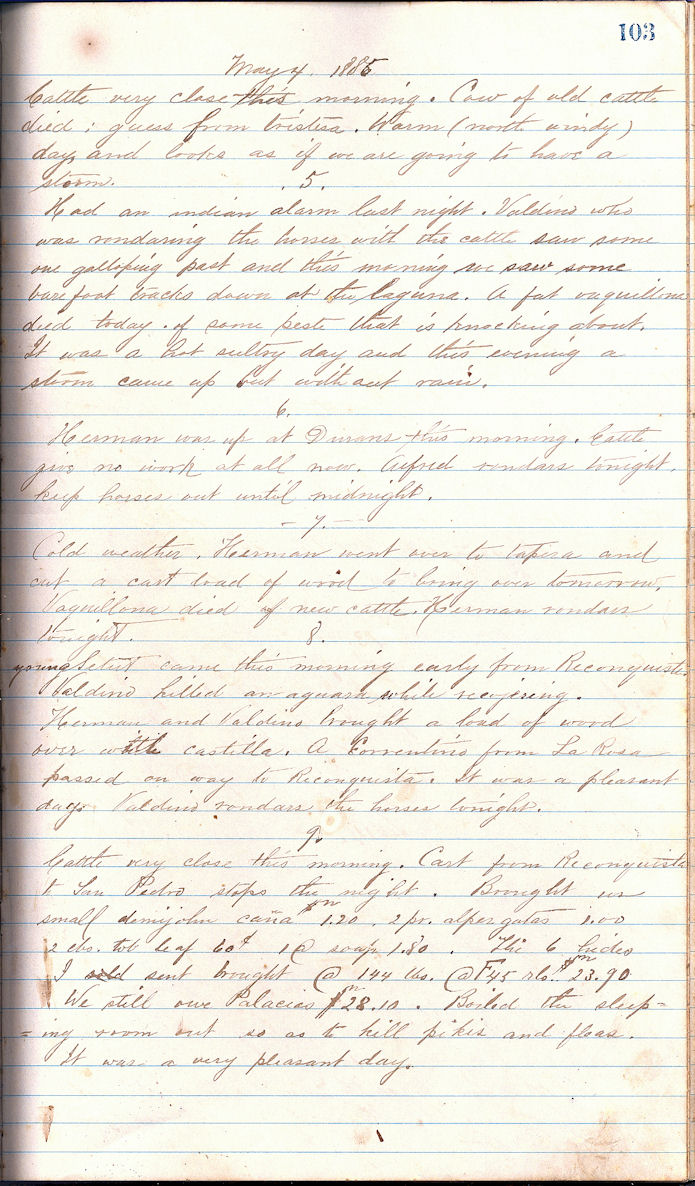 103
May 4. 1885
Cattle very close this morning. Cow of old cattle
died; guess from tristesa. Warm (north windy)
day and looks as if we are going to have a
storm. . 5.
Had an indian alarm last night. Valdino who
was rondaring the horses with the cattle saw some
one galloping past and this morning we saw some
barefoot tracks down at the laguna. A fat vaquillona
died today. of some peste that is knocking about.
It was a hot sultry day and this evening a
storm came up but without rain.
6.
Herman was up at Durans this morning. Cattle
give no work at all now. Alfred rondars tonight.
keep horses out until midnight.
- 7. -
Cold weather. Herman went over to tapera and
cut a cart load of wood to bring over tomorrow.
Vaquillona died of new cattle. Herman rondars
tonight. 8.
young came this morning early from Reconquista
Valdino killed an aguara while recojering.
Herman and Valdino brought a load of wood
over with castilla. A Correntino from La Rosa
passed on way to Reconquista. It was a pleasant
day. Valdino rondars the horses tonight.
9.
Cattle very close this morning. Cart from Reconquista
t San Pedro stops the night. Brought us
small demijohn caña $ 1.20. 2 pr. alpergates 1.00
2 lbs. tob leaf 60¢ 1 @ soap 1.80. The 6 hides
I sold sent brought @ 144 lbs. @ 45 rls. $ 23.90
We still owe Palacios $ 28.10. Boiled the sleep=
=ing room out so as to kill pikis and fleas.
It was a very pleasant day.